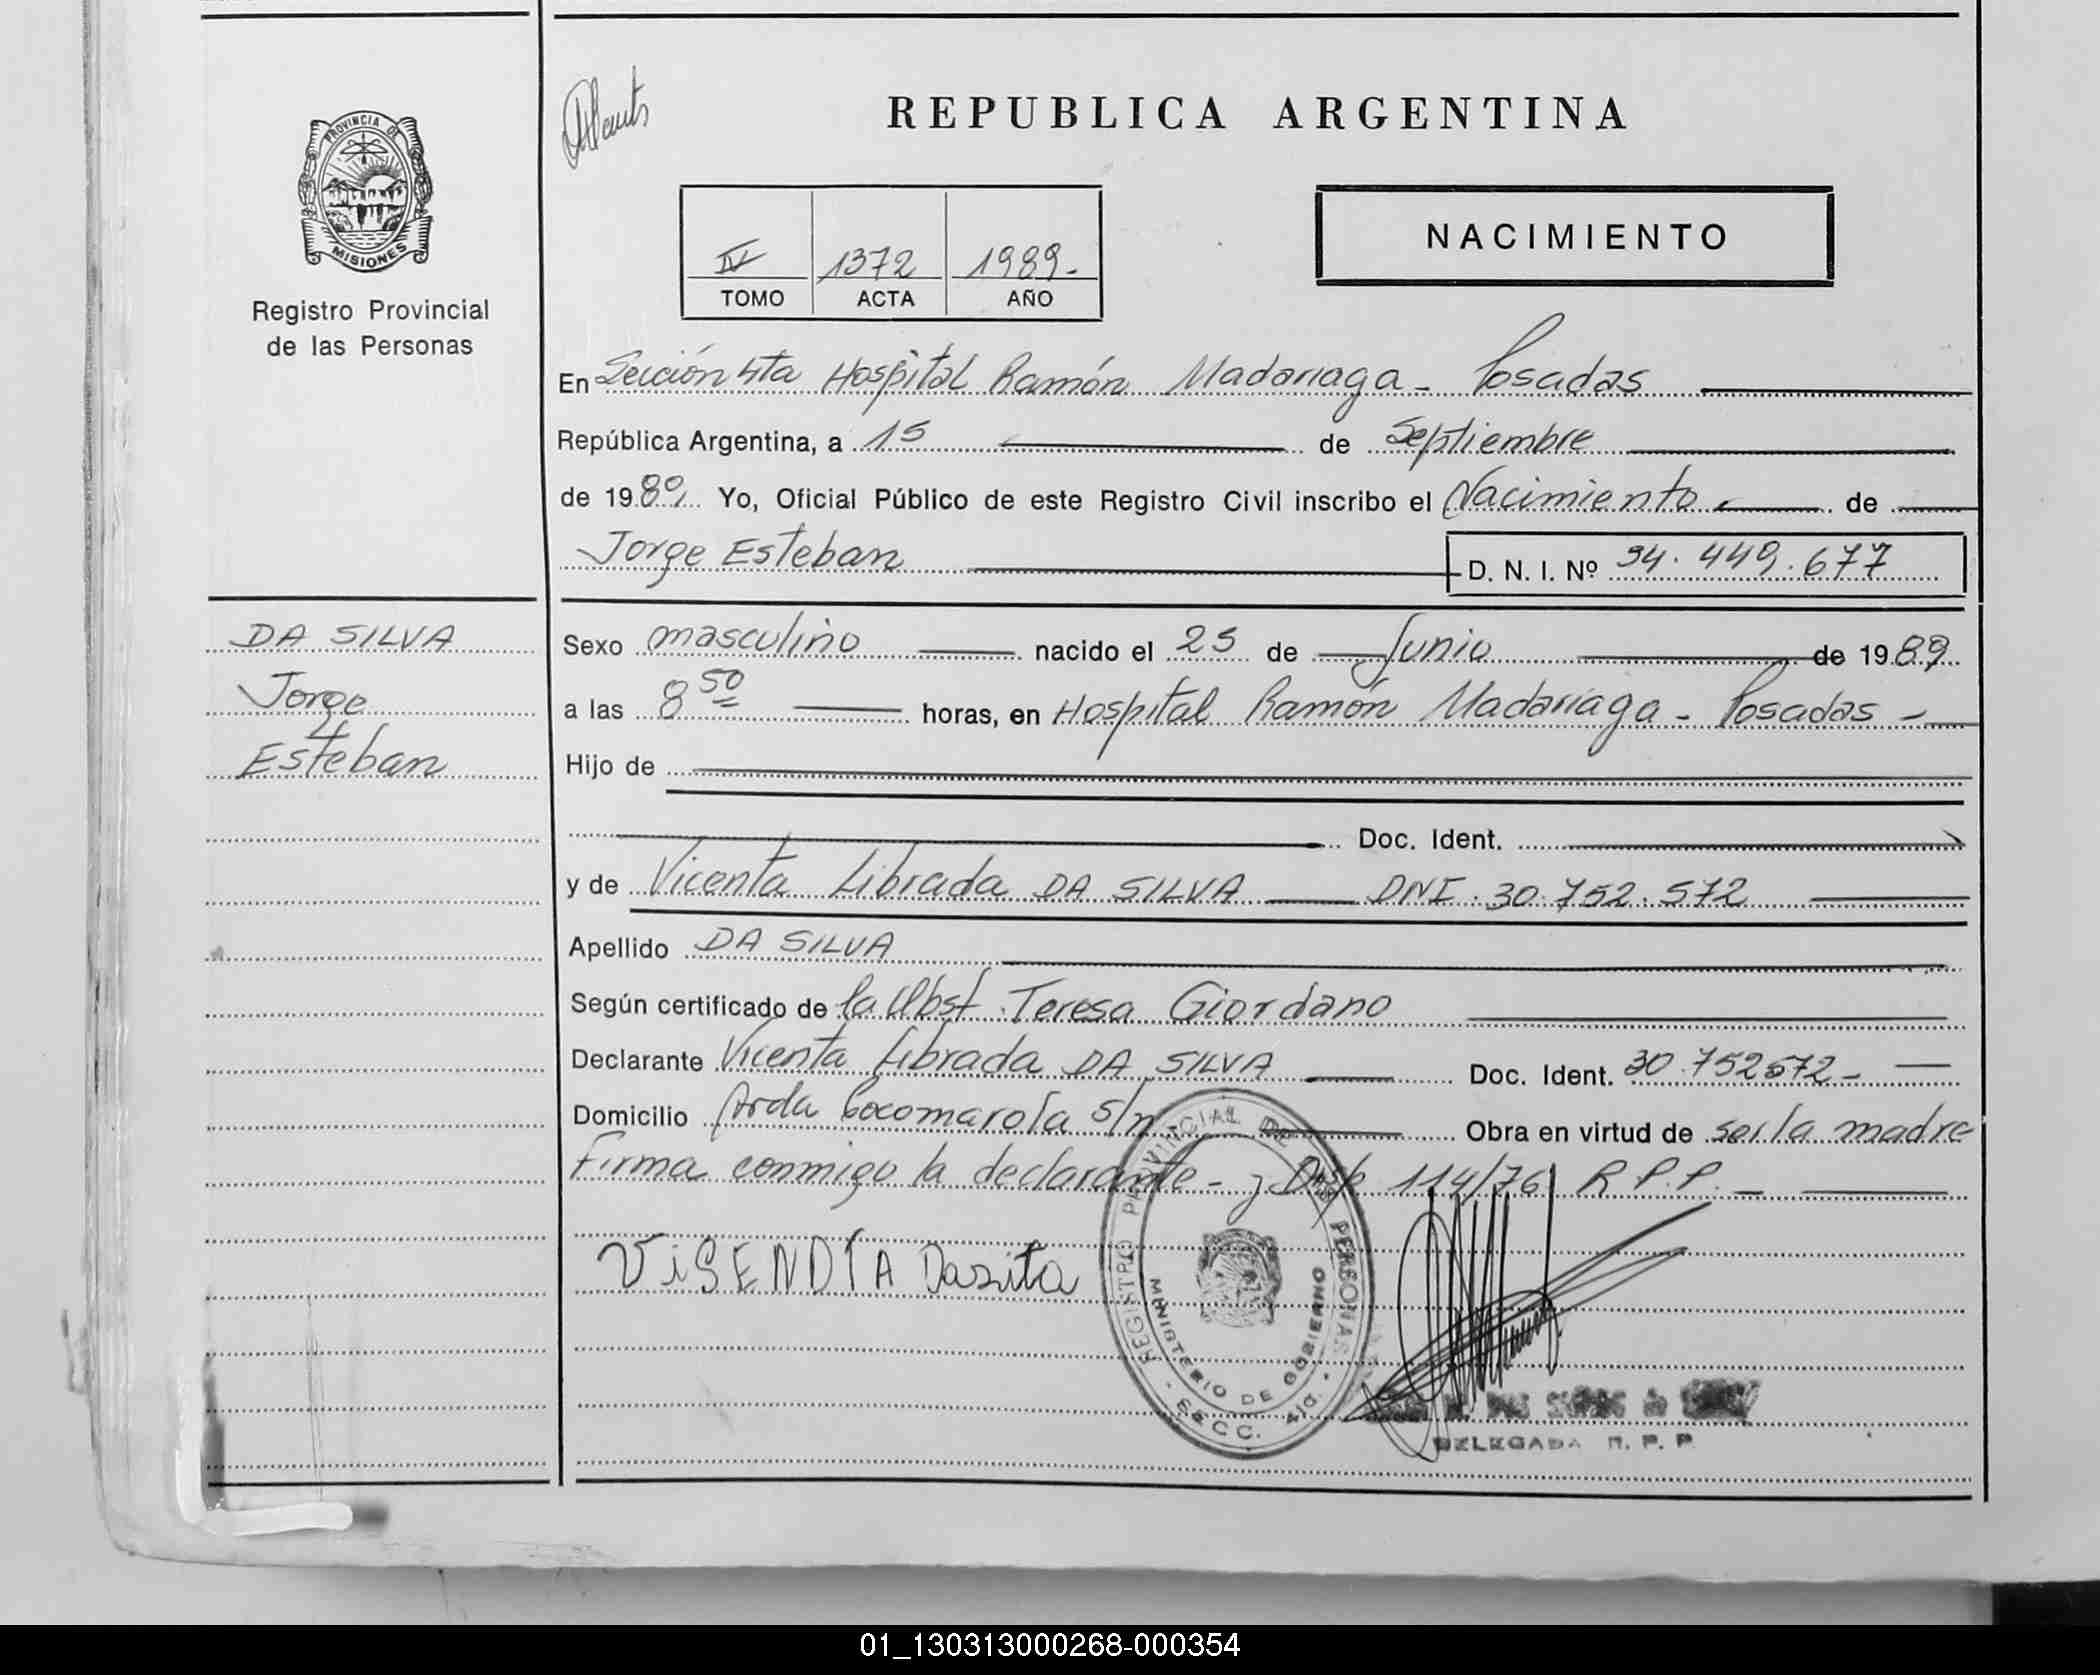 REPUBLICA ARGENTINA
PROVINCIA DE
MISIONES
Registro Provincial
de las Personas
IV 1372 1989.-
TOMO ACTA AÑO
NACIMIENTO
En Sección 4ta Hospital Ramón Madariaga - Posadas
República Argentina, a 15 de Septiembre
de 1989. Yo, Oficial Público de este Registro Civil inscribo el Nacimiento de
Jorge Esteban D. N. I. Nº 34.449.677
DA SILVA
Jorge
Esteban
Sexo masculino nacido el 25 de Junio de 1989
a las 8 50 horas, en Hospital Ramón Madariaga - Posadas -
Hijo de
Doc. Ident.
y de Vicenta Librada DA SILVA DNI. 30.752.572
Apellido DA SILVA
Según certificado de la Obst. Teresa Giordano
Declarante Vicenta Librada DA SILVA Doc. Ident. 30.752572-
Domicilio Avda Cocomarola s/n Obra en virtud de ser la madre
Firma conmigo la declarante - Disp 114/76 R.P.P. -
ViSENDTA Dasita
REGISTRO PROVINCIAL DE LAS PERSONAS
MINISTERIO DE GOBIERNO
DELEGADA R. P. P.
01_130313000268-000354